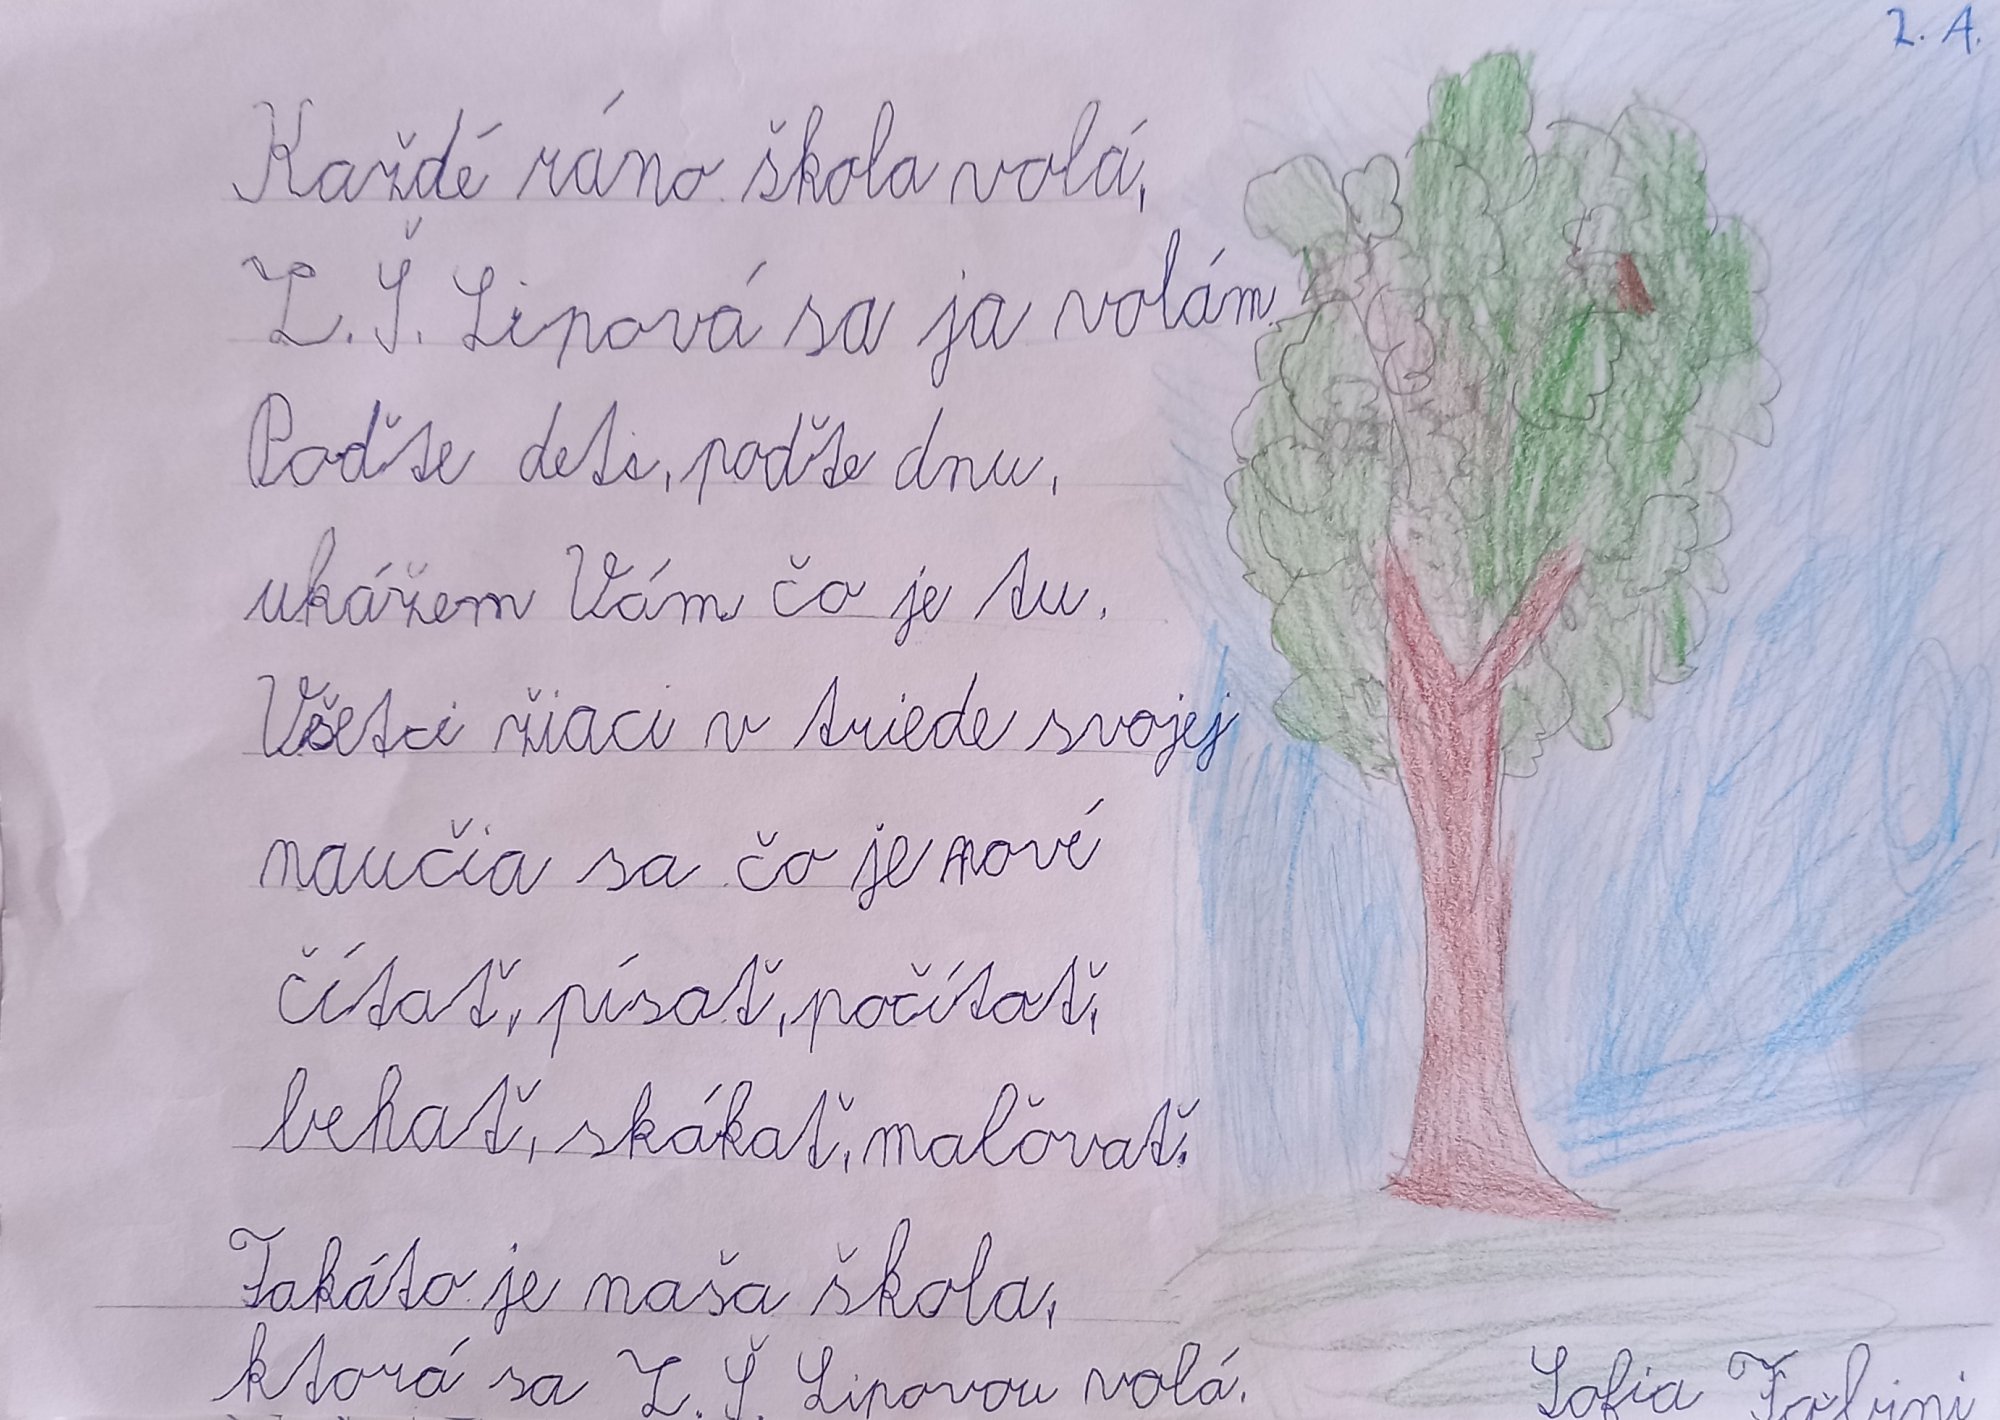 2. A.
Každé ráno škola volá,
Z. Š. Lipová sa ja volám.
Poďte deti, poďte dnu,
ukážem Vám čo je tu.
Všetci žiaci v triede svojej
naučia sa čo je nové
čítať, písať, počítať,
behať, skákať, maľovať.
Takáto je naša škola,
ktorá sa Z. Š. Lipovou volá.
Sofia